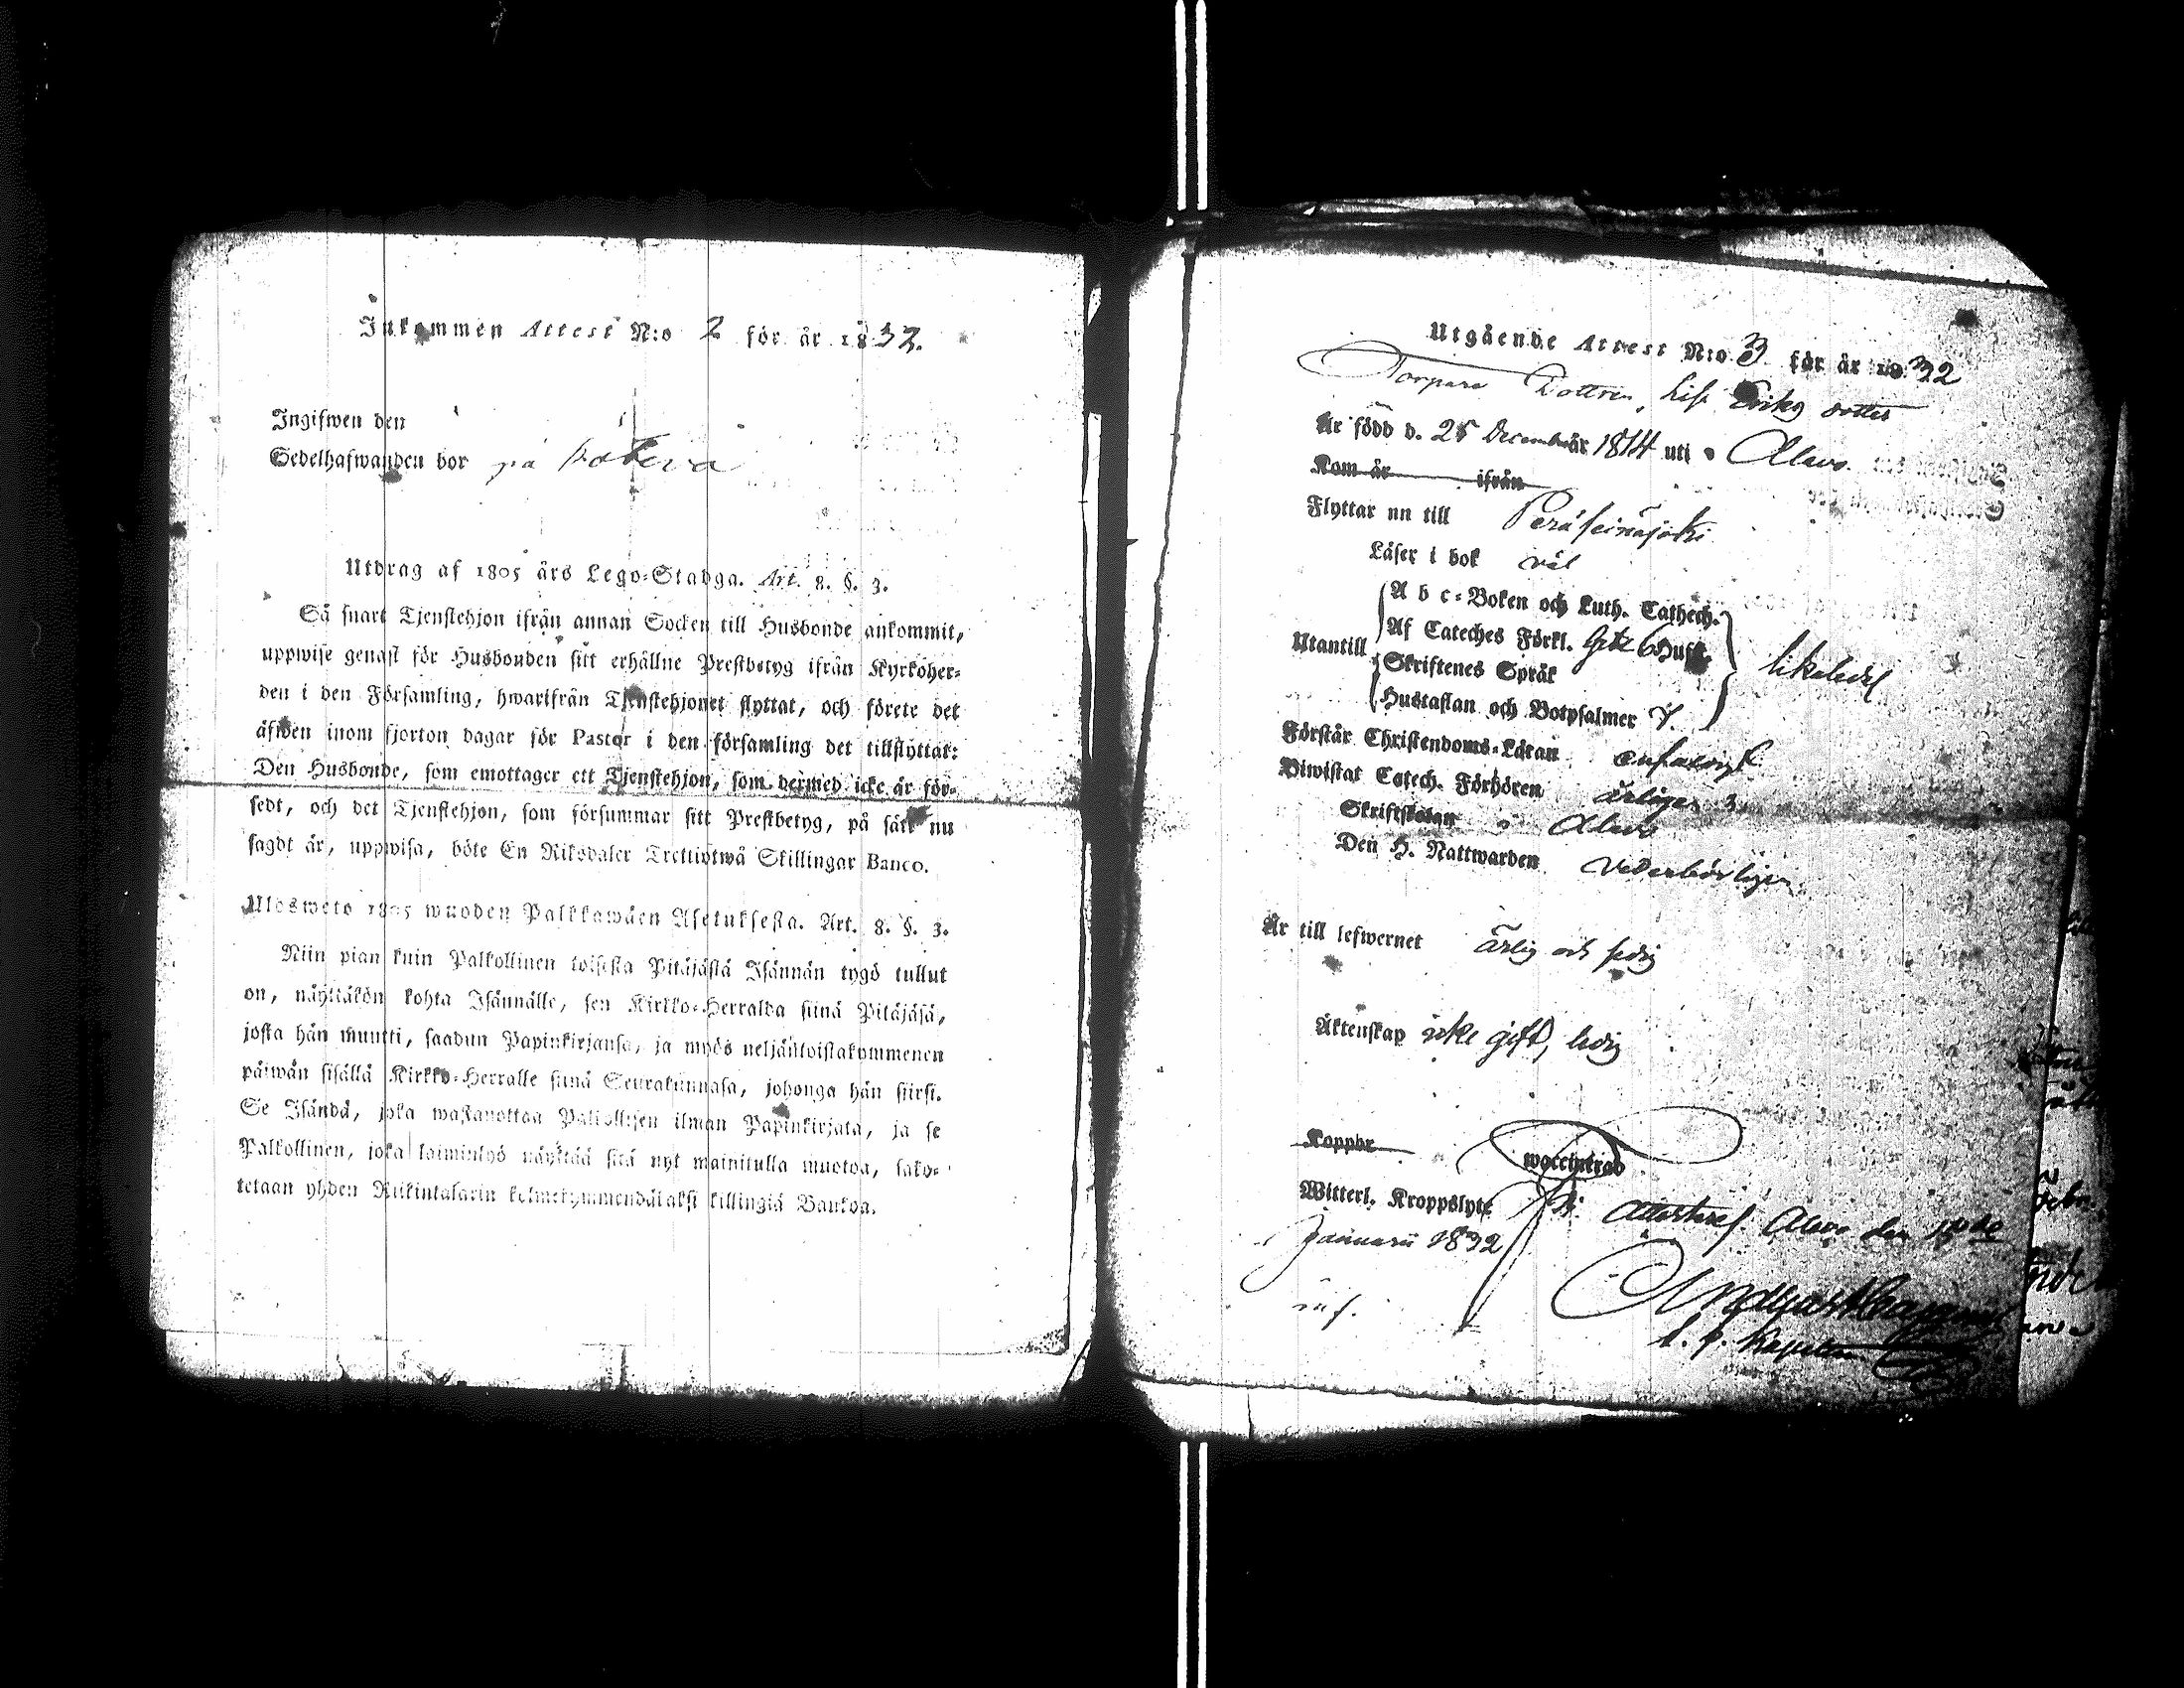 Inkommen Attest N:o 2 för år 1832.
Ingifwen den
Sedelhafwanden bor på
Utdrag af 1805 års Lego-Stadga. Art. 8. §. 3.
Så snart Tjenstehjon ifrån annan Socken till Husbonde ankommit,
uppwise genast för Husbonden sitt erhållne Prestbetyg ifrån Kyrkoher-
den i den Församling, hwarifrån Tjenstehjonet flyttat, och förete det
äfwen inom fjorton dagar för Pastor i den församling det tillflyttat:
Den Husbonde, som emottager ett Tjenstehjon, som dermed icke är för-
sedt, och det Tjenstehjon, som försummar sitt Prestbetyg, på sätt nu
sagdt är, uppwisa, böte En Riksdaler Trettiotwå Skillingar Banco.
Ulosweto 1805 wuoden Palkkawäen Asetuksesta. Art. 8. §. 3.
Niin pian kuin Palkollinen toisesta Pitäjästä Isännän tygö tullut
on, näyttäkön kohta Isännälle, sen Kirkko-Herralda siinä Pitäjäsä,
josta hän muutti, saadun Papinkirjansa, ja myös neljäntoistakymmenen
päiwän sisällä Kirkko-Herralle siinä Seurakunnasa, johonga hän siirsi.
Se Isändä, joka wastanottaa Palkollisen ilman Papinkirjata, ja se
Palkollinen, joka laiminlyö näyttää sitä nyt mainitulla muotoa, sako-
tetaan yhden Riikintalarin kolmekymmendäkaksi killingiä Bankoa.
Utgående Attest N:o 3 för år 1832
Torpare Dottren, Lisa Eriks dotter
Är född d. 25 December år 1814 uti Alavo.
Kom år ifrån
Flyttar nu till Peräseinäjoki
Läser i bok väl
A b c-Boken och Luth. Cathech.
Utantill Af Cateches Förkl. Hufst. likaledes
Skriftenes Språk
Hustaflan och Botpsalmer 7.
Förstår Christendoms-Läran enfaldigt
Biwistat Catech. Förhören årligen
Skriftskolan i Alavo
Den H. Nattwarden vederbörligen
Är till lefwernet ärlig och sedig
Äktenskap icke gift, ledig
Koppor waccinerad
Witterl. Kroppslyte attesteras Alavo den
Januarii 1832